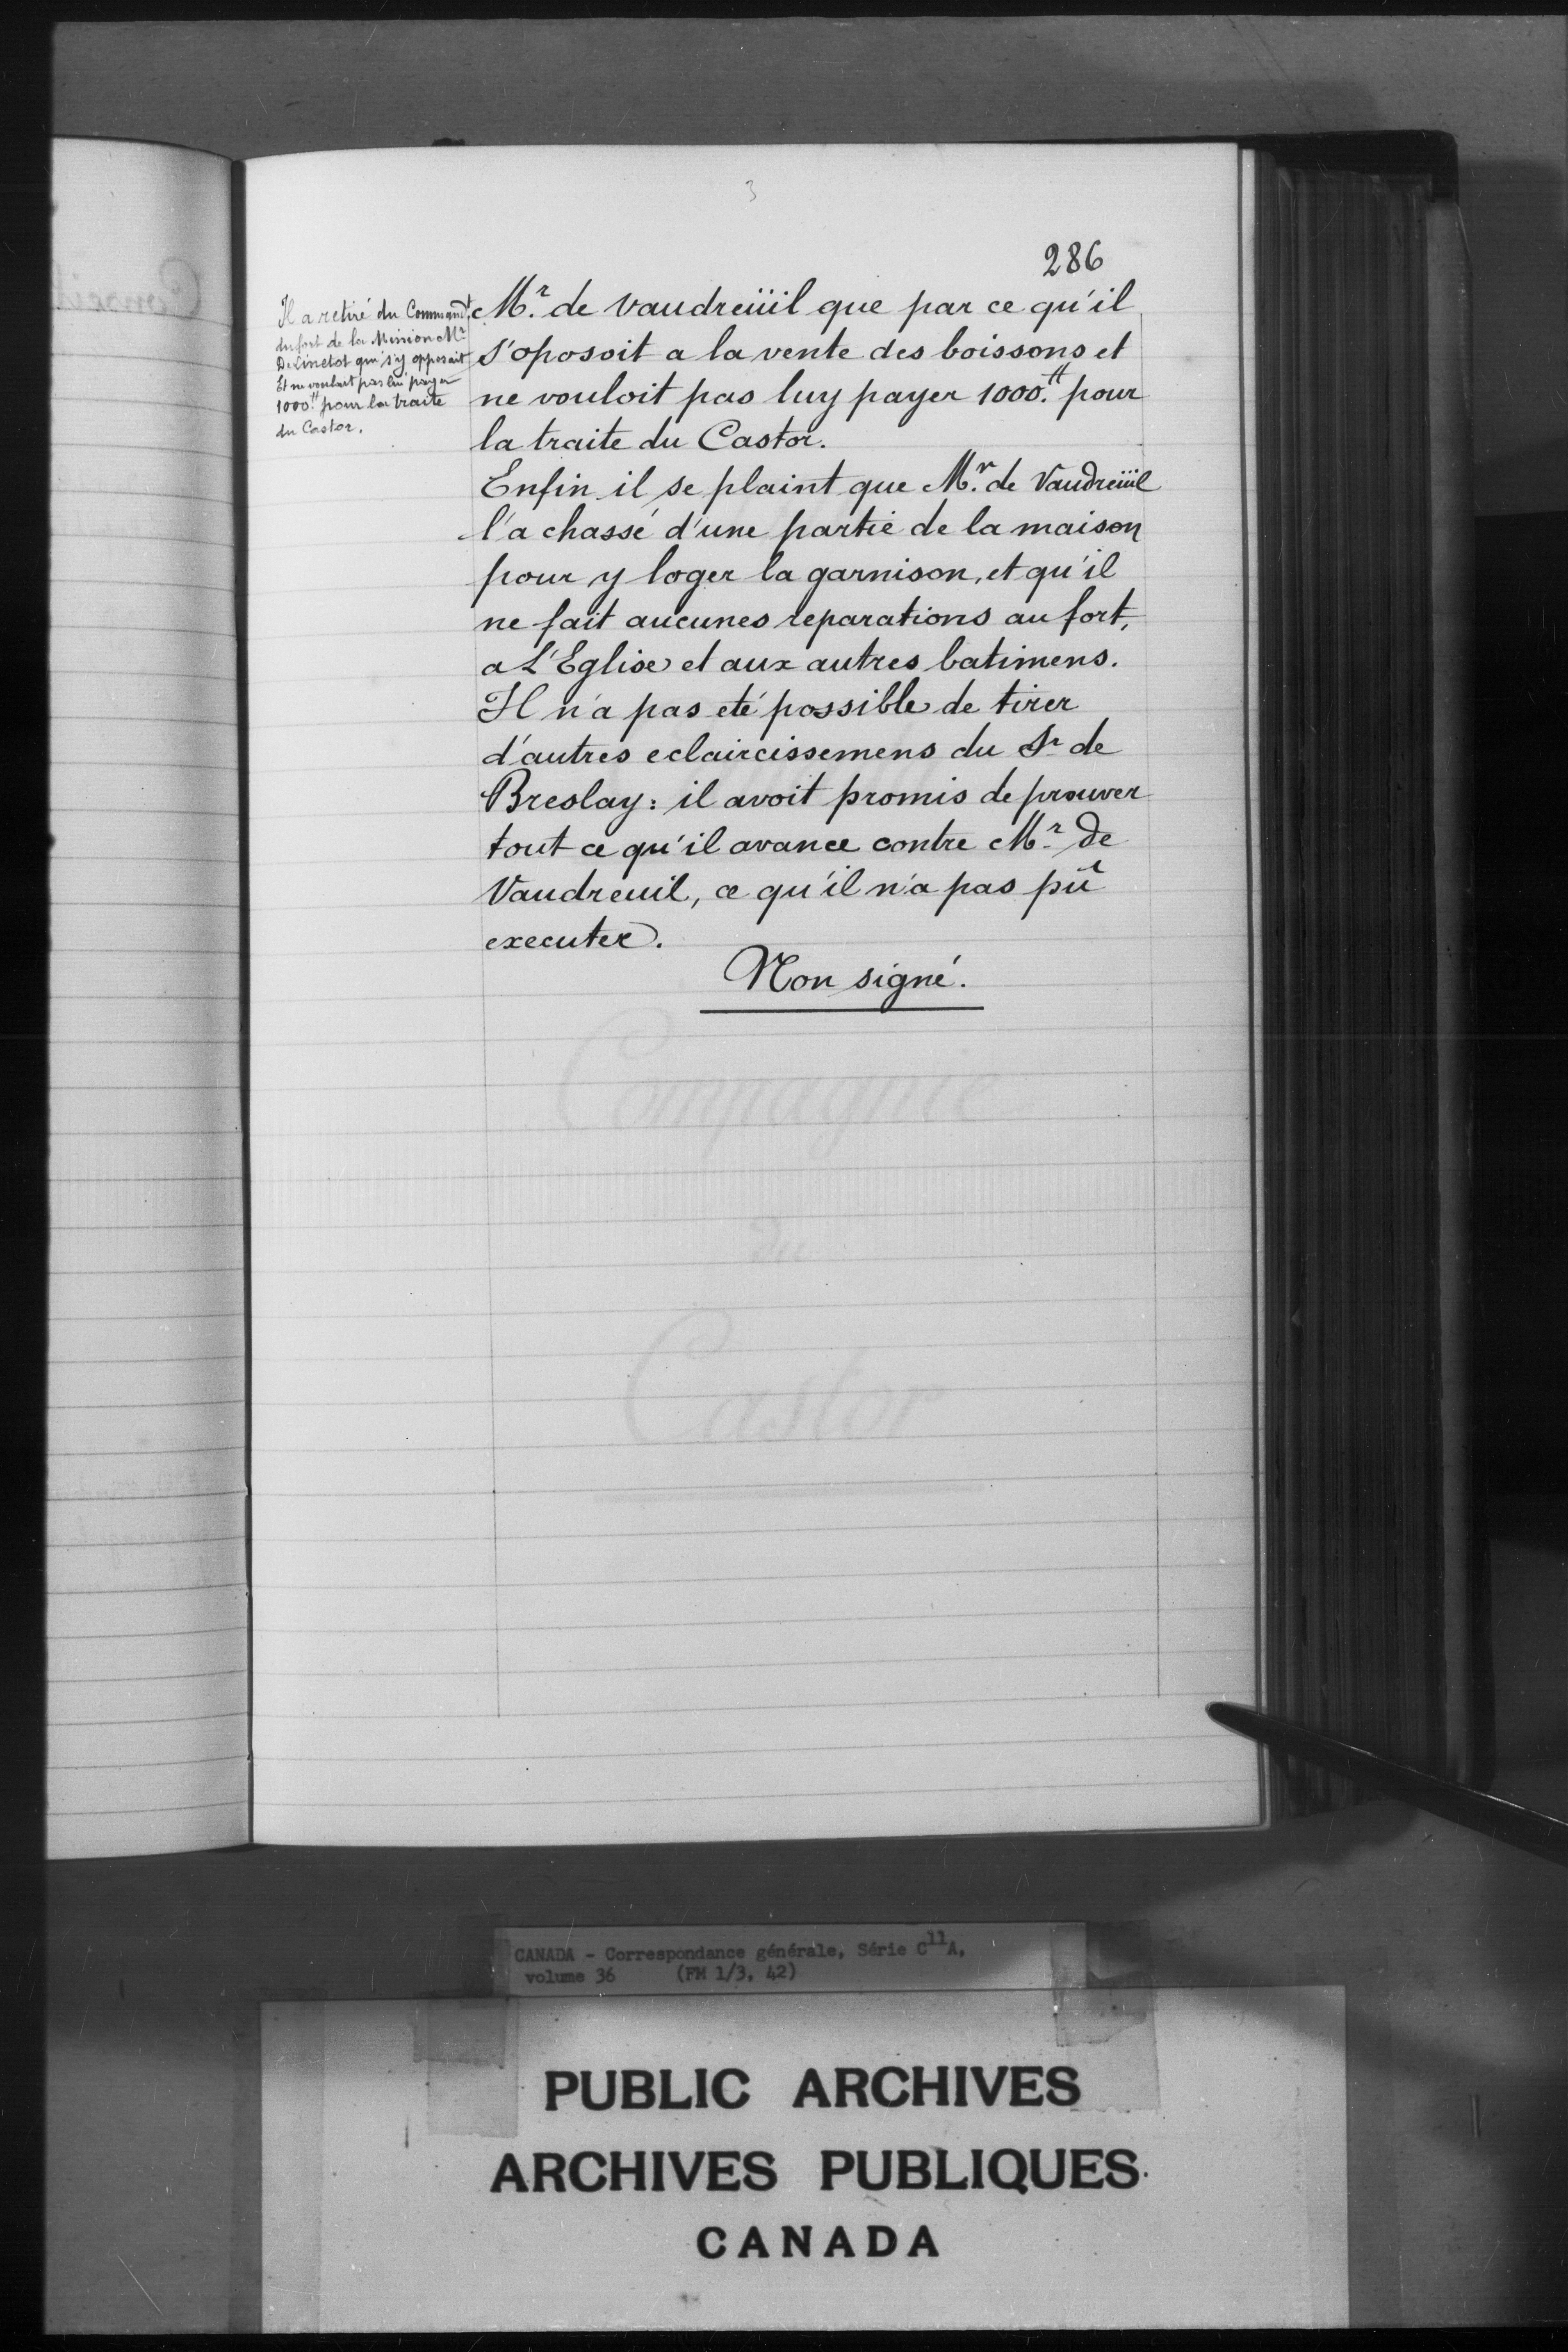 3
286
Il a retiré du Commandt
du fort de la Mission Mr
De Linctot qui s'y opposait
Et ne voulait pas lui payer
1000.tt pour la traite
du Castor.
Mr. de Vaudreüil que par ce qu'il
s'oposoit a la vente des boissons et
ne vouloit pas luy payer 1000.tt pour
la traite du Castor.
Enfin il se plaint que Mr. de Vaudreüil
l'a chassé d'une partie de la maison
pour y loger la garnison, et qu'il
ne fait aucunes reparations au fort,
a L'Eglise et aux autres batimens.
Il n'a pas eté possible de tirer
d'autres eclaircissemens du Sr de
Breslay: il avoit promis de prouver
tout ce qu'il avance contre Mr. de
Vaudreuil, ce qu'il n'a pas pû
executer.
Non signé.
Compagnie
du
Castor
CANADA - Correspondance générale, Série C11A,
volume 36 (FM 1/3, 42)
PUBLIC ARCHIVES
ARCHIVES PUBLIQUES
CANADA